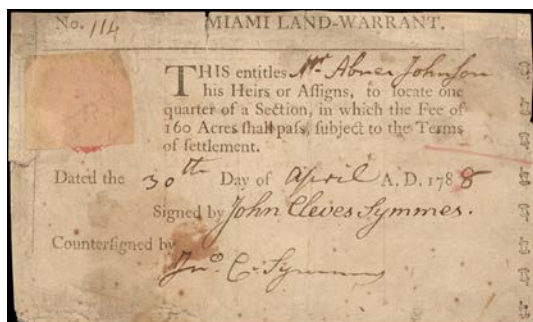 No. 114 MIAMI LAND-WARRANT.
THIS entitles Mr Abner Johnson
his Heirs or Aſſigns, to locate one
quarter of a Section, in which the Fee of
160 Acres ſhall paſs, ſubject to the Terms
of ſettlement.
Dated the 30th Day of April A. D. 1788
Signed by John Cleves Symmes.
Counterſigned by
Jno. C. Symmes